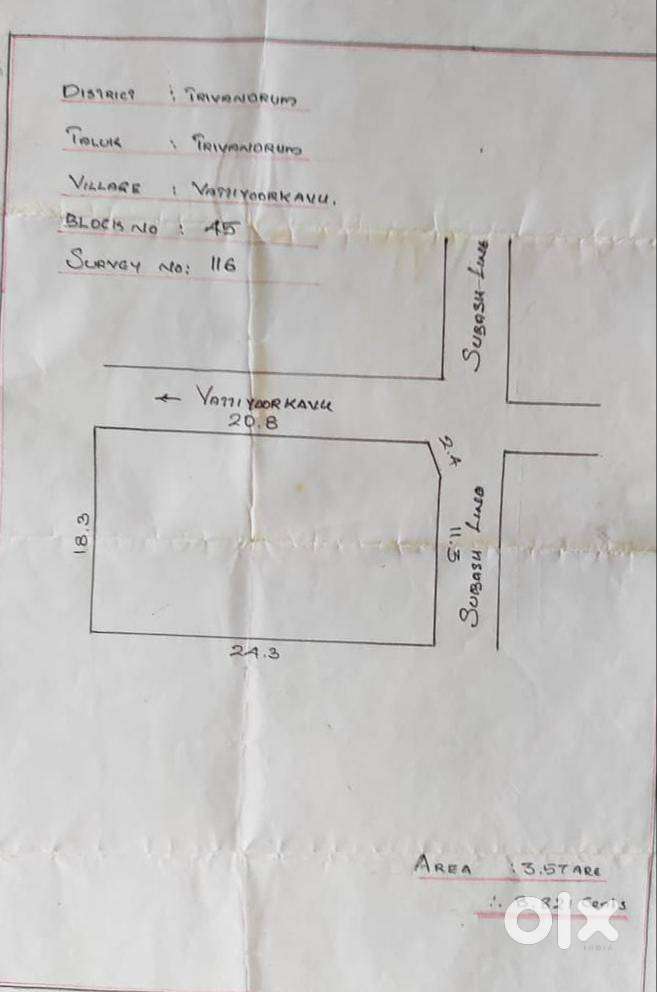 DISTRICT : TRIVANDRUM
TALUK : TRIVANDRUM
VILLAGE : VATTIYOORKAVU.
BLOCK NO : 45
SURVEY NO: 116
SUBASH LINE
← VATTIYOORKAVU
20.8
18.3
11.3
SUBASH LINE
24.3
AREA : 3.57 ARE
∴ 8.821 Cents
olx
INDIA